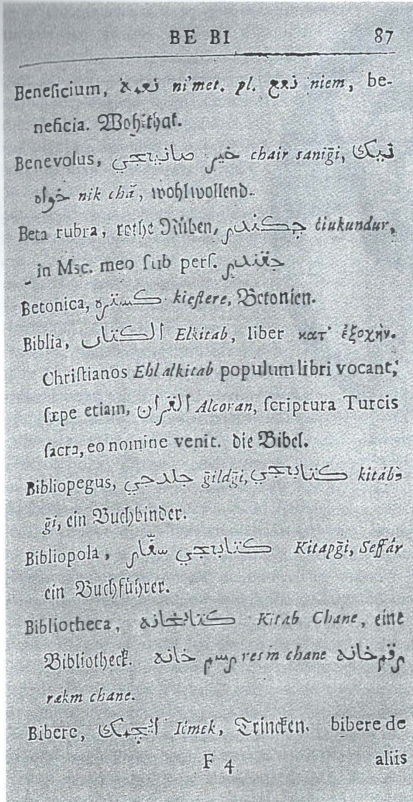 BE BI 87
Beneficium, نعمة ni'met. pl. نعم niem, be-
neficia. Wohlthat.
Benevolus, خير صانيجي chair sanigi, نيك
خواه nik chā, wohlwollend.
Beta rubra, rothe Rüben, چكندر ciukundur,
in Msc. meo sub pers. چغندر
Betonica, كستره kiestere, Betonien.
Biblia, الكتاب Elkitab, liber κατ' ἐξοχὴν.
Christianos Ehl alkitab populum libri vocant,
sæpe etiam, القران Alcoran, scriptura Turcis
sacra, eo nomine venit. die Bibel.
Bibliopegus, كتابجي, جلدجي ğildği, kitáb-
ği, ein Buchbinder.
Bibliopola, كتابجي سفّار Kitapği, Seffár
ein Buchführer.
Bibliotheca, كتابخانه Kitab Chane, eine
Bibliotheck. رسم خانه resm chane رقم خانه
rækm chane.
Bibere, ايچمك Icmek, Trincken. bibere de
F 4 aliis